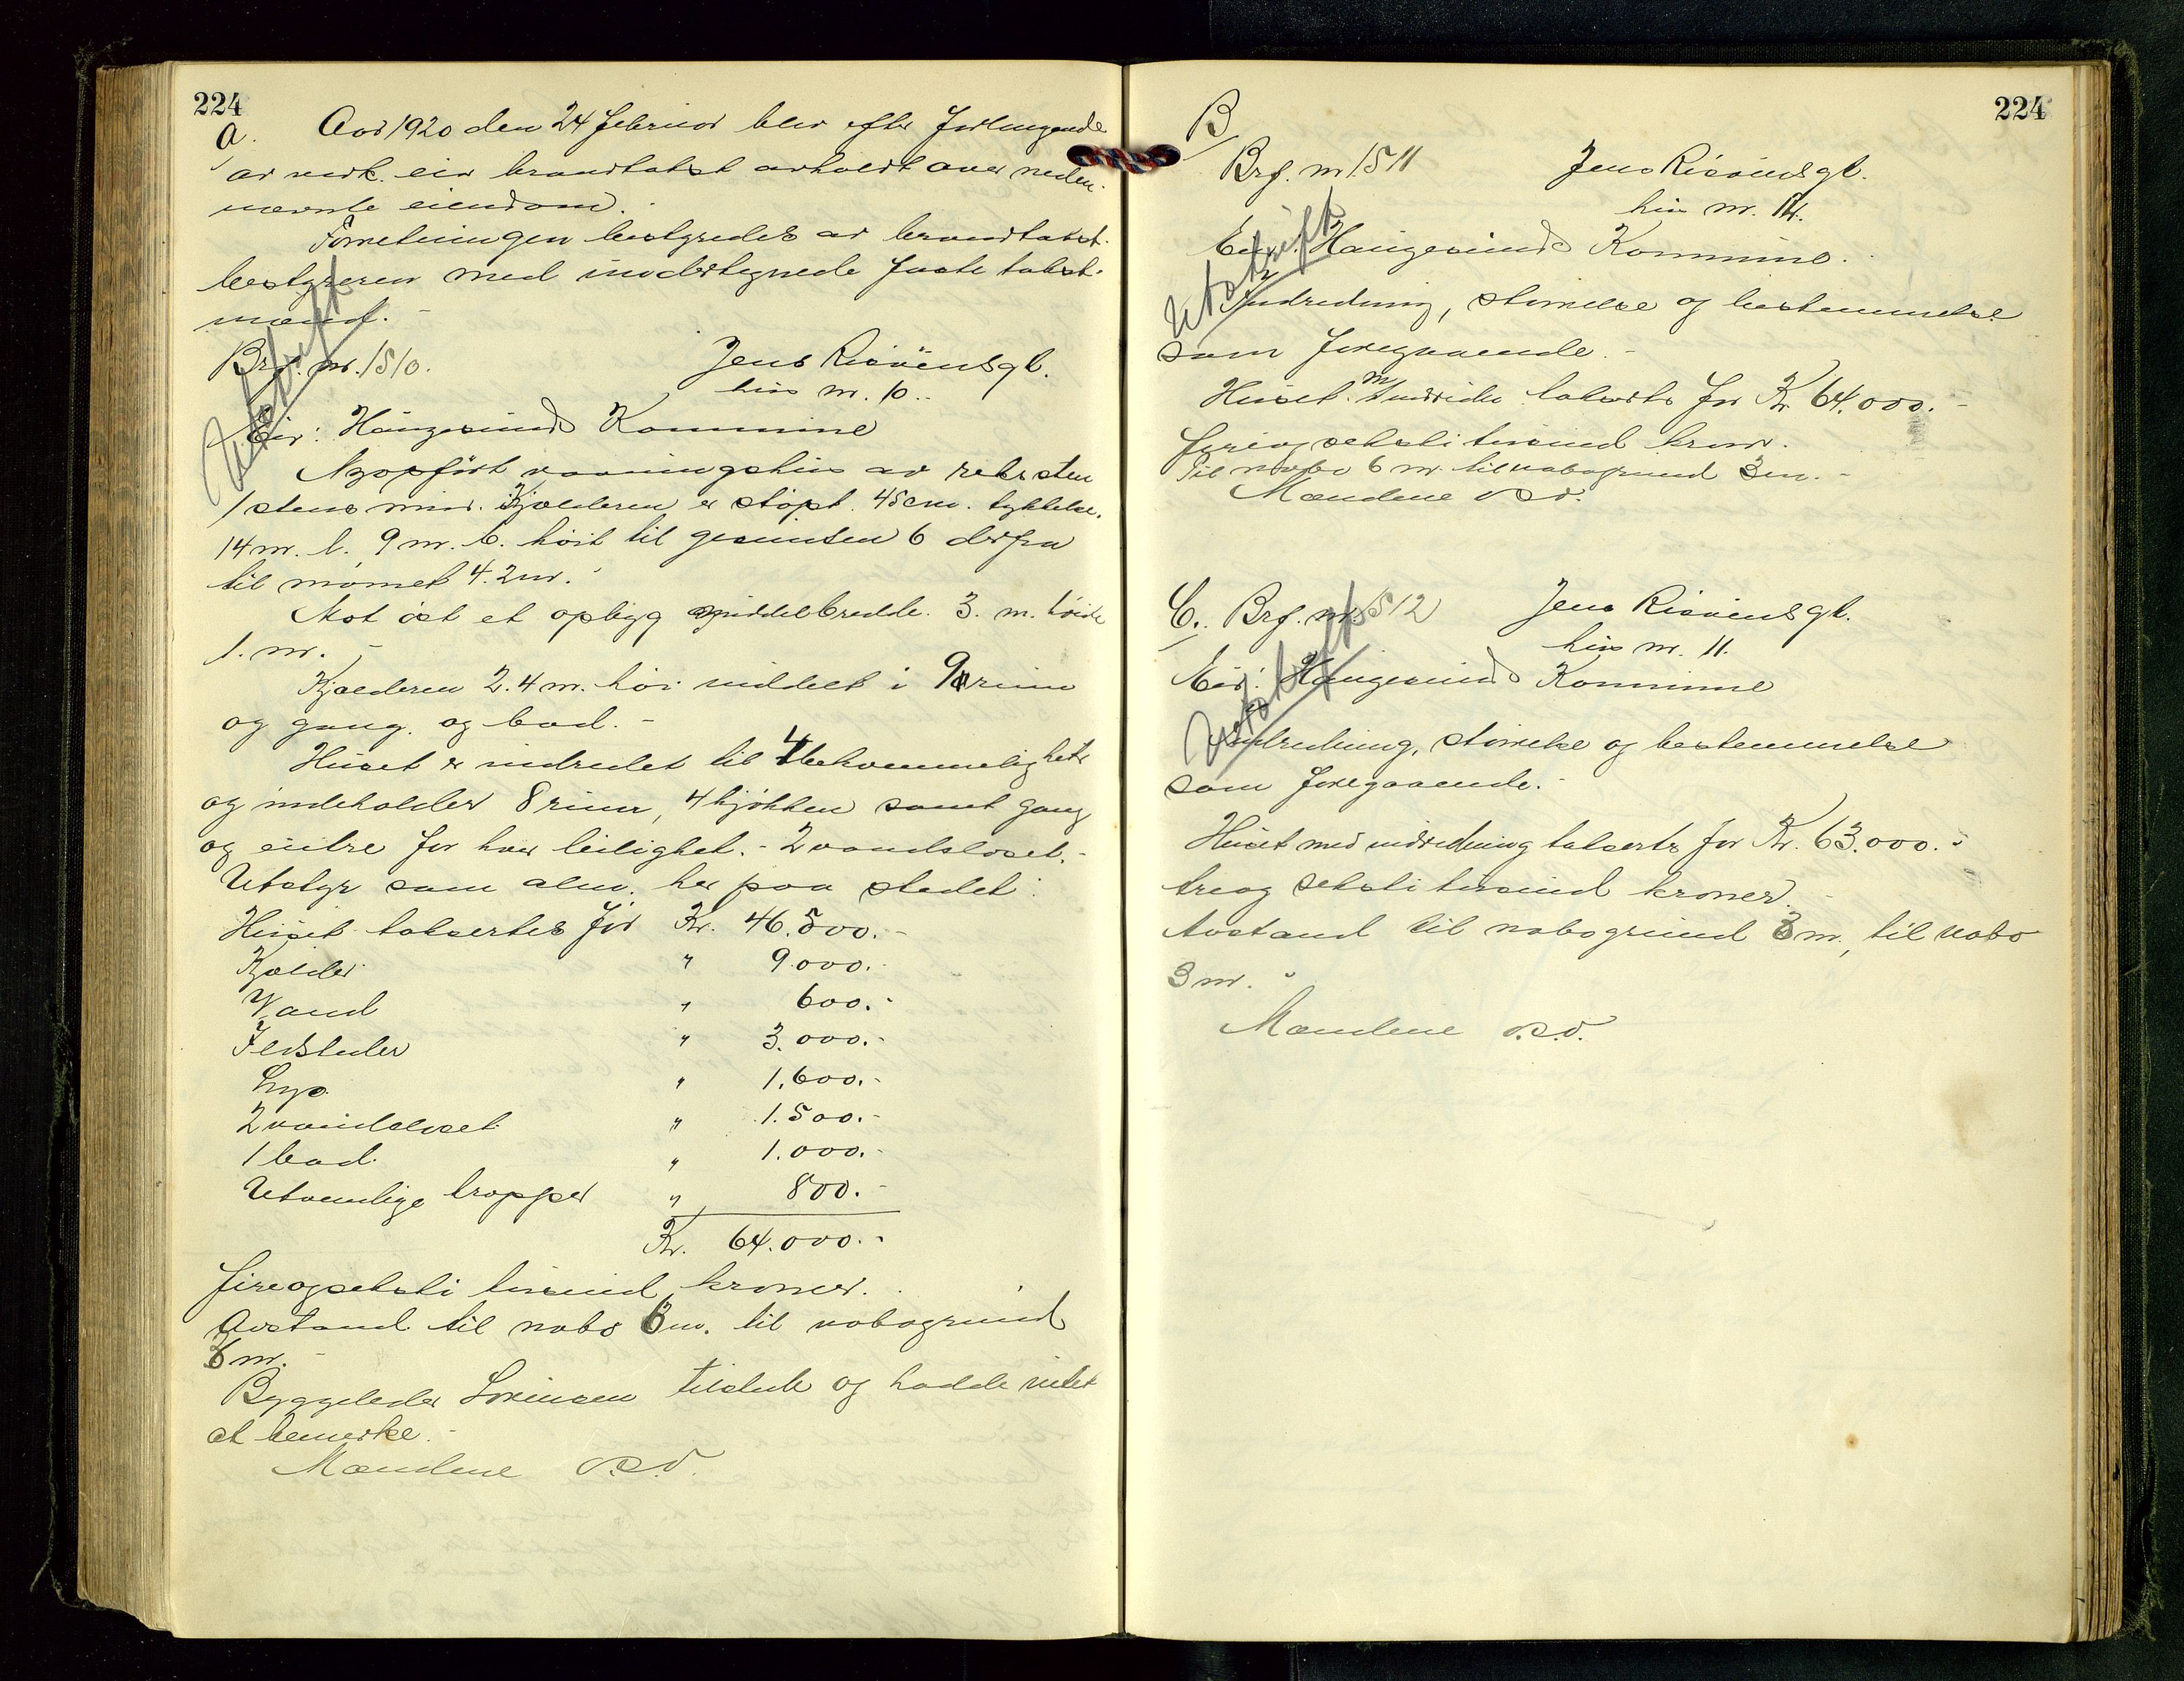 224
a. Aar 1920 den 24 februar blev efter forlangende
av vedk. eier brandtakst avholdt over neden-
nævnte eiendom.
Forretningen bestyredes av brandtakst-
bestyreren med undertegnede faste takst-
mænd.-
Utskrift
Brf. nr. 1510. Jens Risøensgt.
hus nr. 10.-
Eier: Haugesunds Kommune
Nyopført vaaningshus av reksten
1 stens mur. Kjælderen er støpt. 45 cm. tykkelse.
14 m. l. 9 m. b. høit til gesimsen 6 derfra
til mønnet 4.2 m.
Mot øst et opbygg middelbredde. 3. m. høide
1. m.-
Kjælderen 2.4 m. høi inddelt i 9 rum
og gang. og bad.-
Huset er indredet til 4 bekvemmeligheter
og indeholder 8 rum, 4 kjøkken samt gang
og entre for hver leilighet.- 2 vandkloset.-
Utstyr som alm. her paa stedet:
Huset taksertes for Kr. 46.500.-
Kjælder " 9.000.-
Vand " 600.-
Ildsteder " 3.000.-
Lys. " 1.600.-
2 vandkloset " 1.500.-
1 bad. " 1.000.-
Utvendige trapper " 800.-
Kr. 64.000.-
fireogseksti tusind kroner.
Avstand til nabo 6 m. til nabogrund
3 m.-
Byggeleder Sørensen tilstede og hadde intet
at bemerke.-
Mændene o.s.v.
224
B
Brf. nr. 1511 Jens Risøensgt.
hus nr. 14.
Utskrift
Eier: Haugesunds Kommune.
Indredning, størrelse og bestemmelse
som foregaaende.-
Huset m indredn taksertes for Kr. 64.000.-
fireogseksti tusind kroner.
Til nabo 6 m. til nabogrund 3 m.-
Mændene o.s.v.
C. Brf. nr. 1512 Jens Risøensgt.
hus nr. 11.
Utskrift
Eier: Haugesunds Kommune
Indredning, størrelse og bestemmelse
som foregaaende.-
Huset med indredning taksertes for Kr. 63.000.-
treogseksti tusind kroner.-
Avstand til nabogrund 3 m., til nabo
3 m.-
Mændene o.s.v.